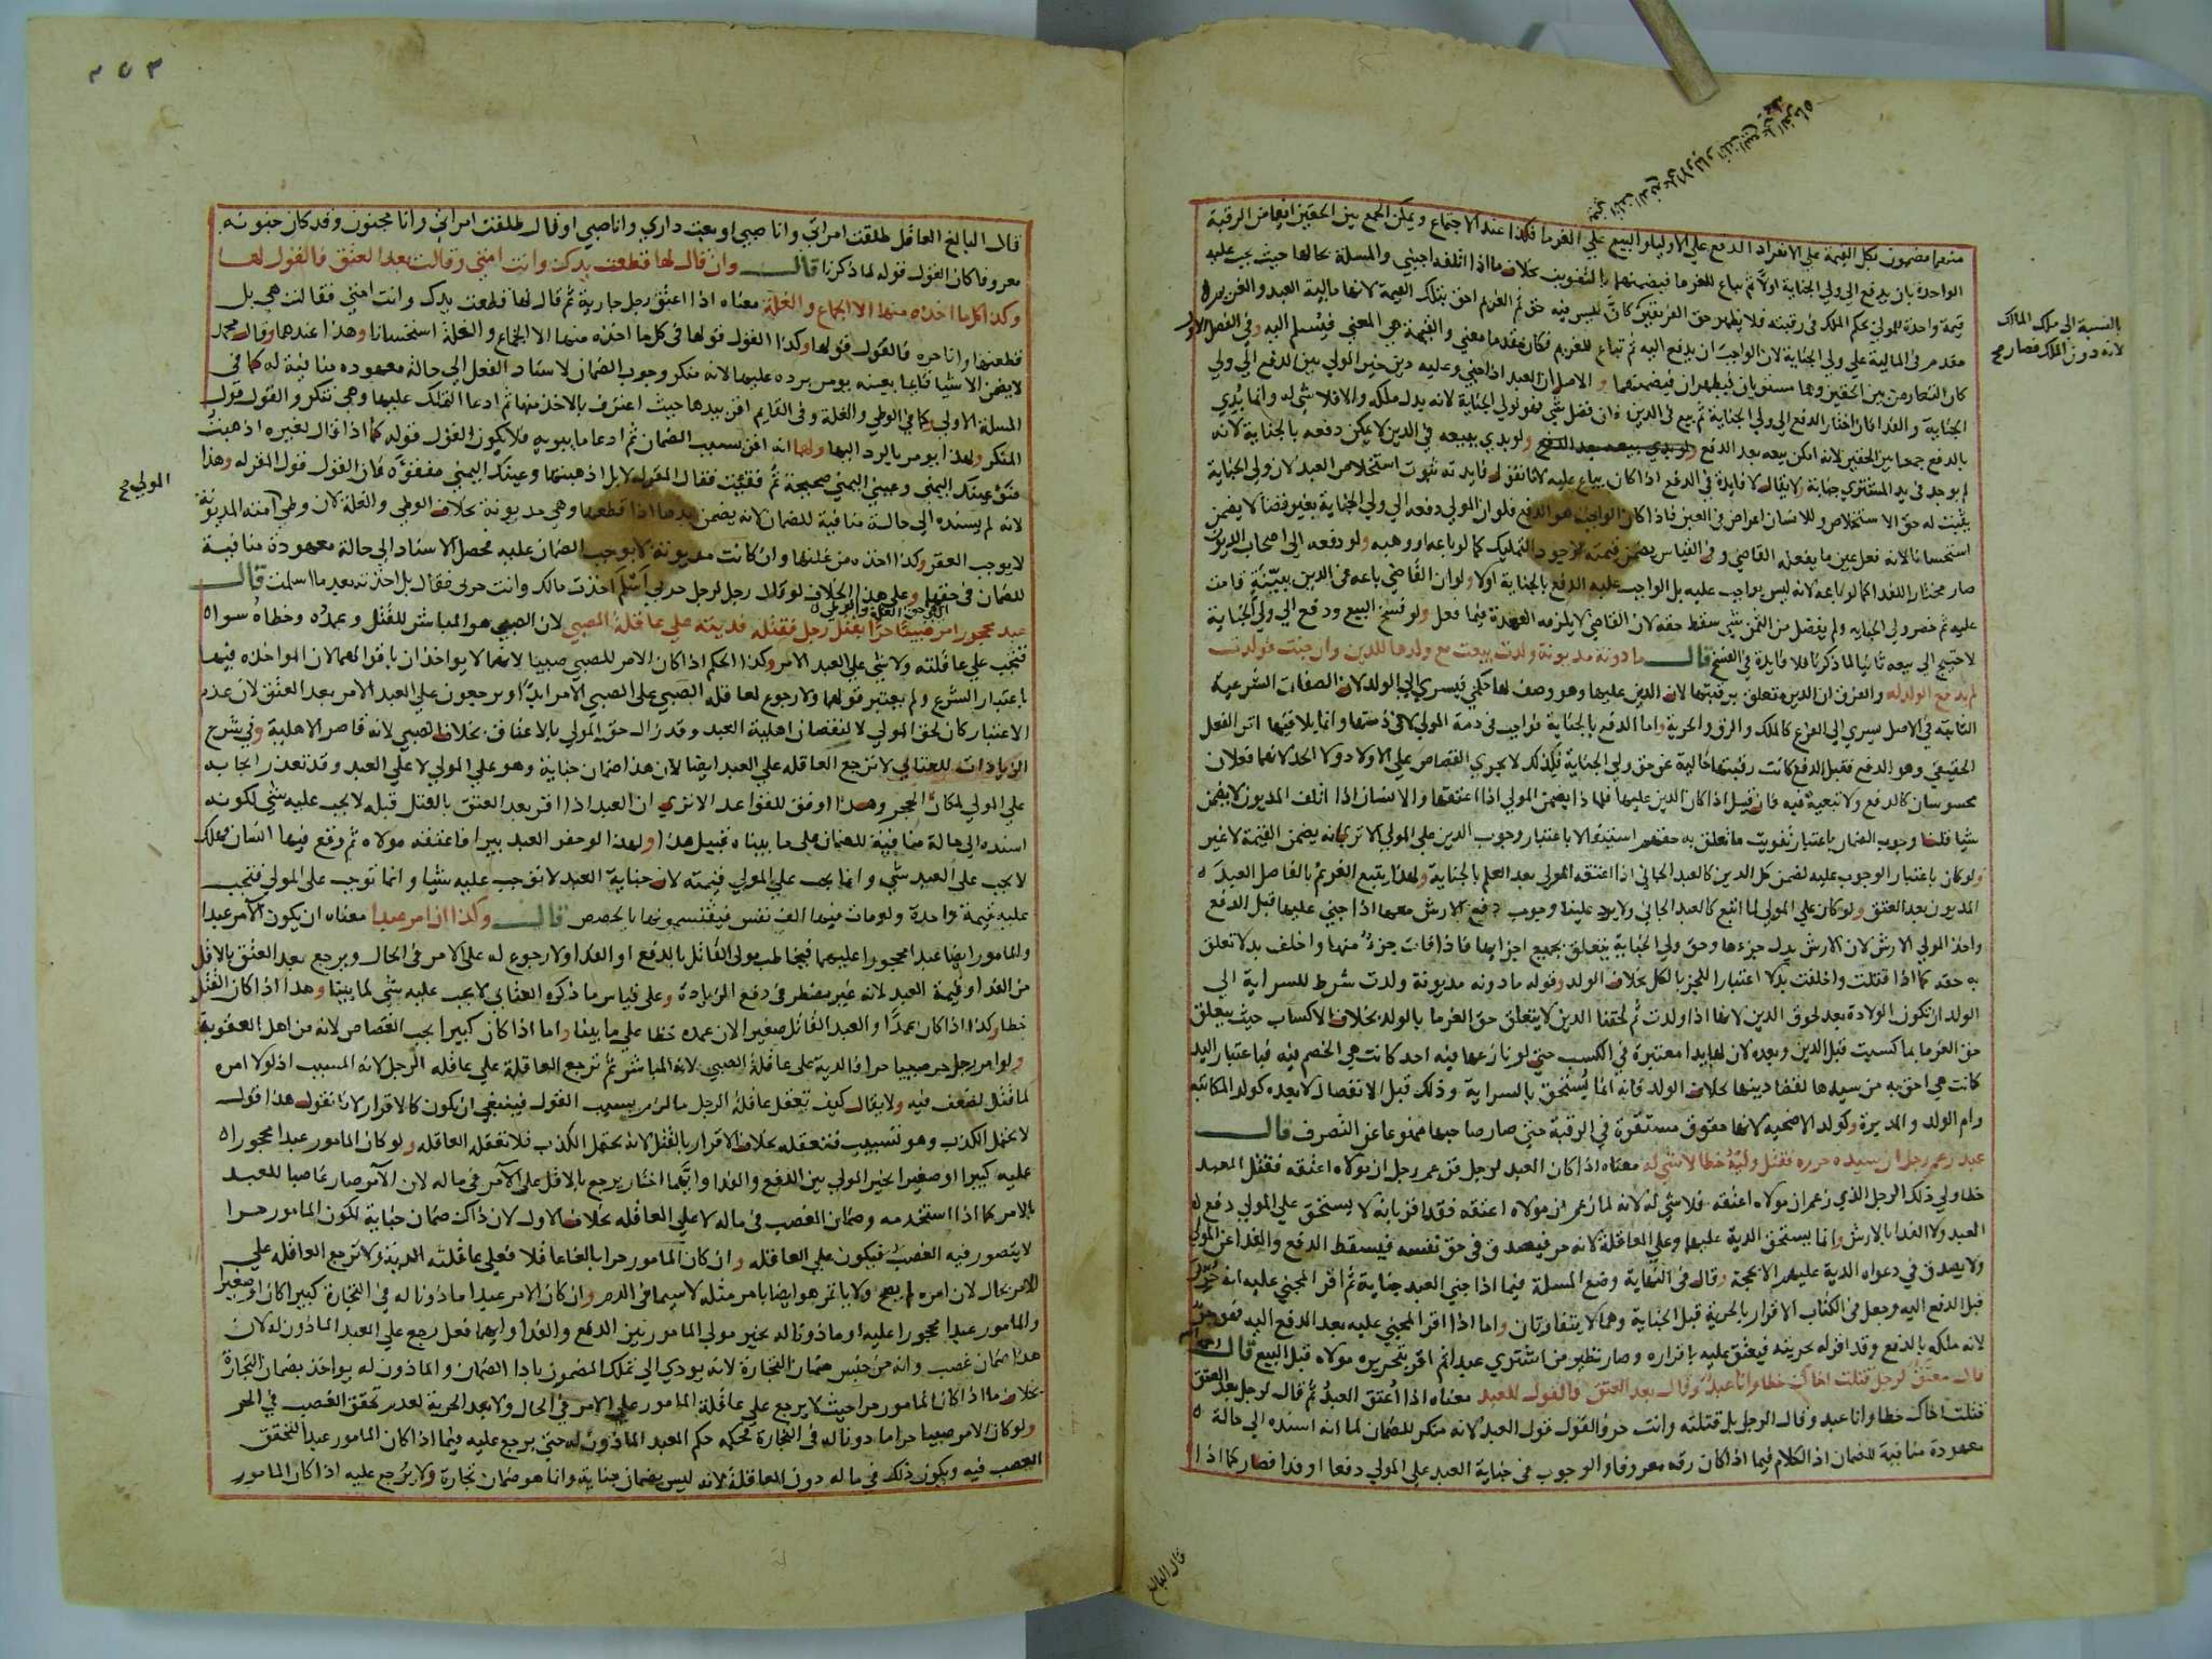 منهما مضمون بكل القيمة على الانفراد الدفع على الاوليا والبيع على الغرما فكذا عند الاجتماع ويمكن الجمع بين الحقين ايضا من الرقبة
الواحدة بان يدفع الى ولي الجناية اولا ثم يباع للغرما فيضمنهما بالتفويت بخلاف ما اذا اتلفه اجنبي والمسلة بحالها حيث يجب عليه
قيمة واحدة للمولي بحكم الملك في رقبته فلا يظهر حق الفريقين
بالنسبة الى ملك المالك
لانه دون الملك فصار
مقدم في المالية على ولي الجناية لان الواجب ان يدفع اليه ثم تباع للغريم فكان مقدما معني والقيمة هي المعني فيسلم اليه وفي الفصل الاول
كان التعارض بين الحقين وهما مستويان فيظهران فيضمنهما والاصل ان العبد اذا جني وعليه دين خير المولي بين الدفع الى ولي
الجناية والفدا فان اختار الدفع الى ولي الجناية ثم بيع في الدين فان فضل شي فهو لولي الجناية لانه بدل ملكه والا فلا شي له وانما بدي
بالدفع جمعا بين الحقين لانه امكن بيعه بعد الدفع ولو بدي ببيعه في الدين لا يمكن دفعه بالجناية لانه
لم يوجد في يد المشتري جناية ولا يقال لا فايدة في الدفع اذا كان يباع عليه لانا نقول فايدته ثبوت استخلاص العبد لان ولي الجناية
يثبت له حق الاستخلاص وللانسان اغراض في العين فاذا كان الواجب هو الدفع فلو ان المولي دفعه الى ولي الجناية بغير قضا لا يضمن
استحسانا لانه فعل عين ما يفعله القاضي وفي القياس يضمن قيمته لوجود التمليك كما لو باعه او وهبه ولو دفعه الى اصحاب الديون
صار مختارا للفدا كما لو باعه لانه ليس بواجب عليه بل الواجب عليه الدفع بالجناية اولا ولو ان القاضي باعه في الدين ببينة قامت
عليه ثم حضر ولي الجنايه ولم يفضل من الثمن شي سقط حقه لان القاضي لا يلزمه العهدة فيما فعل ولو فسخ البيع ودفع الى ولي الجناية
لاحتيج الى بيعه ثانيا لما ذكرنا فلا فايدة في الفسخ قال مادونة مديونة ولدت بيعت مع ولدها للدين وان جنت فولدت
لم يدفع الولد له والفرق ان الدين متعلق برقبتها لان الدين عليها وهو وصف لها حكمي فيسري الى الولد لان الصفات الشرعية
الثابتة في الاصل يسري الى الفرع كالملك والرق والحرية واما الدفع بالجناية فواجب في ذمة المولي لا في ذمتها وانما يلاقيها اثر الفعل
الحقيقي وهو الدفع فقبل الدفع كانت رقبتها خالية عن حق ولي الجناية فلذلك لا يجري القصاص على الاولاد ولا الحد لانهما فعلان
محسوسان كالدفع ولا تبعية فيه فان قيل اذا كان الدين عليها فلماذا يضمن المولي اذا اعتقها والانسان اذا اتلف المديون لا يضمن
شيا قلنا وجوب الضمان باعتبار تفويت ما تعلق به حقهم استيفا لا باعتبار وجوب الدين على المولي الا تري انه يضمن القيمة لا غير
ولو كان باعتبار الوجوب عليه لضمن كل الدين كالعبد الجاني اذا اعتقه المولي بعد العلم بالجناية ولهذا يتبع الغريم بالفاضل العبد
المديون بعد العتق ولو كان على المولي لما اتبع كالعبد الجاني ولا يرد علينا وجوب دفع الارش معها اذا جني عليها قبل الدفع
واخذ المولي الارش لان الارش بدل جزءها وحق ولي الجناية يتعلق بجميع اجزايها فاذا فات جزء منها واخلف بدلا تعلق
به حقه كما اذا قتلت واخلفت بدلا اعتبارا للجز بالكل بخلاف الولد وقوله مادونه مديونة ولدت شرط للسراية الى
الولد ان تكون الولادة بعد لحوق الدين لانها اذا ولدت ثم لحقها الدين لا يتعلق حق الغرما بالولد بخلاف الاكساب حيث يتعلق
حق الغرما بما كسبت قبل الدين وبعده لان لها يدا معتبرة في الكسب حتي لو نازعها فيه احد كانت هي الخصم فيه فباعتبار اليد
كانت هي احق به من سيدها لقضا دينها بخلاف الولد فانه انما يستحق بالسراية وذلك قبل الانفصال لا بعده كولد المكاتبه
وام الولد والمدبرة وكولد الاضحيه لانها حقوق مستقرة في الرقبة حتي صار صاحبها ممنوعا عن التصرف قال
عبد زعم رجل ان سيده حرره فقتل وليه خطا لا شي له معناه اذا كان العبد لرجل فزعم رجل ان مولاه اعتقه فقتل العبد
خطا ولي ذلك الرجل الذي زعم ان مولاه اعتقه فلا شي له لانه لما زعم ان مولاه اعتقه فقد اقر بانه لا يستحق على المولي دفع
العبد ولا الفدا بالارش وانما يستحق الدية عليه وعلى العاقلة لانه حر فيصدق في حق نفسه فيسقط الدفع والفدا عن المولي
ولا يصدق في دعواه الدية عليهم الا بحجة وقال في النهاية وضع المسلة فيما اذا جني العبد جناية ثم اقر المجني عليه انه حر
قبل الدفع اليه وجعل في الكتاب الاقرار بالحرية قبل الجناية وهما لا يتفاوتان واما اذا اقر المجني عليه بعد الدفع اليه فهو حر
لانه ملكه بالدفع وقد اقر له بحريته فيعتق عليه باقراره وصار نظير من اشتري عبدا ثم اقر بتحريره مولاه قبل البيع قال
قال معتق لرجل قتلت اخاك خطا وانا عبد وقال بعد العتق فالقول للعبد معناه اذا اعتق العبد ثم قال لرجل بعد العتق
قتلت اخاك خطا وانا عبد وقال الرجل بل قتلته وانت حر فالقول قول العبد لانه منكر للضمان لما انه اسنده الى حالة
معهودة منافية للضمان اذ الكلام فيما اذا كان رقه معروفا والوجوب في جناية العبد على المولي دفعا او فدا فصار كما اذا
قال البالغ
٢٥٣
قال البالغ العاقل طلقت امراتي وانا صبي او بعت داري وانا صبي او قال طلقت امراتي وانا مجنون وقد كان جنونه
معروفا كان القول قوله لما ذكرنا قال وان قال لها قطعت يدك وانت امتي وقالت بعد العتق فالقول لها
وكذا كل ما اخذه منها الا الجماع والغلة معناه اذا اعتق رجل جارية ثم قال لها قطعت يدك وانت امتي فقالت هي بل
قطعتها وانا حره فالقول قولها وكذا القول قولها في كل ما اخذه منها الا الجماع والغلة استحسانا وهذا عندهما وقال محمد
لا يضمن الا شيا قايما بعينه يومر برده عليها لانه منكر وجوب الضمان لاسناد الفعل الى حالة معهوده منافية له كما في
المسلة الاولى وكما في الوطي والغلة وفي القايم اقر بيدها حيث اعترف بالاخذ منها ثم ادعا التملك عليها وهي تنكر والقول قول
المنكر ولهذا يومر بالرد اليها ولهما انه اقر بسبب الضمان ثم ادعا ما يبريه فلا يكون القول قوله كما اذا قال لغيره اذهبت
ضوء عينك اليمني وعيني اليمني صحيحة ثم فقئت فقال المقر له لا بل اذهبتها وعينك اليمني مفقؤة فان القول قول المقر له وهذا
المولي
لانه لم يسنده الى حالة منافية للضمان لانه يضمن يدها اذا قطعها وهي مديونة بخلاف الوطي والغلة لان وطي امته المديونة
لا يوجب العقر وكذا اخذه من غلتها وان كانت مديونة لا يوجب الضمان عليه فحصل الاسناد الى حالة معهودة منافية
للضمان في حقها وعلى هذا الخلاف لو قال رجل لرجل حربي اسلم اخذت مالك وانت حربي فقال بل اخذته بعد ما اسلمت قال
عبد محجور امر صبيا حرا بقتل رجل فقتله فديته على عاقلة الصبي لان الصبي هو المباشر للقتل وعمده وخطاه سواء
فتجب على عاقلته ولا شي على العبد الامر وكذا الحكم اذا كان الامر للصبي صبيا لانهما لا يواخذان باقوالهما لان المواخذه فيها
باعتبار الشرع ولم يعتبر قولهما ولا رجوع لعاقلة الصبي على الصبي الامر ابدا ويرجعون على العبد الامر بعد العتق لان عدم
الاعتبار كان لحق المولي لا لنقصان اهلية العبد وقد زال حق المولي بالاعتاق بخلاف الصبي لانه قاصر الاهلية وفي شرح
الزيادات للعتابي لا ترجع العاقله على العبد ايضا لان هذا ضمان جناية وهو على المولي لا على العبد وقد تعذر ايجابه
على المولي لمكان الحجر وهذا اوفق للقواعد الا تري ان العبد اذا اقر بعد العتق بالقتل قبله لا يجب عليه شي لكونه
اسنده الى حالة منافية للضمان على ما بيناه قبيل هذا ولهذا لو حفر العبد بيرا فاعتقه مولاه ثم وقع فيها انسان فهلك
لا يجب على العبد شي وانما يجب على المولي قيمته لان جناية العبد لا توجب عليه شيا وانما توجب على المولي فتجب
عليه قيمة واحدة ولو مات فيها الف نفس فيقتسمونها بالحصص قال وكذا ان امر عبدا معناه ان يكون الامر عبدا
والمامور ايضا عبدا محجورا عليهما فيخاطب مولي القاتل بالدفع او الفدا ولا رجوع له على الامر في الحال ويرجع بعد العتق بالاقل
من الفدا وقيمة العبد لانه غير مضطر في دفع الزيادة وعلى قياس ما ذكره العتابي لا يجب عليه شي لما بينا وهذا اذا كان القتل
خطا وكذا اذا كان عمدا والعبد القاتل صغيرا لان عمده خطا على ما بينا واما اذا كان كبيرا يجب القصاص لانه من اهل العقوبة
ولو امر رجل حر صبيا حرا فالدية على عاقلة الصبي لانه المباشر ثم ترجع العاقلة على عاقله الرجل لانه المسبب اذ لولا امره
لما قتل لضعف فيه ولا يقال كيف تعقل عاقلة الرجل ما لزم بسبب القول فينبغي ان يكون كالاقرار لانا نقول هذا قول
لا يحتمل الكذب وهو تسبيب فتعقله بخلاف الاقرار بالقتل لانه يحتمل الكذب فلا تعقله العاقله ولو كان المامور عبدا محجورا
عليه كبيرا او صغيرا يخير المولي بين الدفع والفدا وايهما اختار يرجع بالاقل على الآمر في ماله لان الآمر صار غاصبا للعبد
بالامر كما اذا استخدمه وضمان الغصب في ماله لا على العاقله بخلاف الاول لان ذاك ضمان جناية لكون المامور حرا
لا يتصور فيه الغصب فيكون على العاقله وان كان المامور حرا بالغا عاقلا فعلى عاقلته الدية ولا ترجع العاقله على
الامر بحال لان امره لم يصح ولا ياتمر هو ايضا بامر مثله لاسيما في الدم وان كان الامر عبدا ماذونا له في التجارة كبيرا كان او صغيرا
والمامور عبدا محجورا عليه او ماذونا له يخير مولي المامور بين الدفع والفدا وايهما فعل رجع على العبد الماذون له لان
هذا ضمان غصب وانه من جنس ضمان التجارة لانه يودي الى تملك المضمون بادا الضمان والماذون له يواخذ بضمان التجارة
بخلاف ما اذا كان المامور حرا حيث لا يرجع على عاقلة المامور على الامر في الحال ولا بعد الحرية لعدم تحقق الغصب في الحر
ولو كان الامر صبيا حرا ماذونا له في التجارة فحكمه حكم العبد الماذون له حتي يرجع عليه فيما اذا كان المامور عبدا لتحقق
الغصب فيه ويكون ذلك في ماله دون العاقلة لانه ليس بضمان جناية وانما هو ضمان تجارة ولا يرجع عليه اذا كان المامور